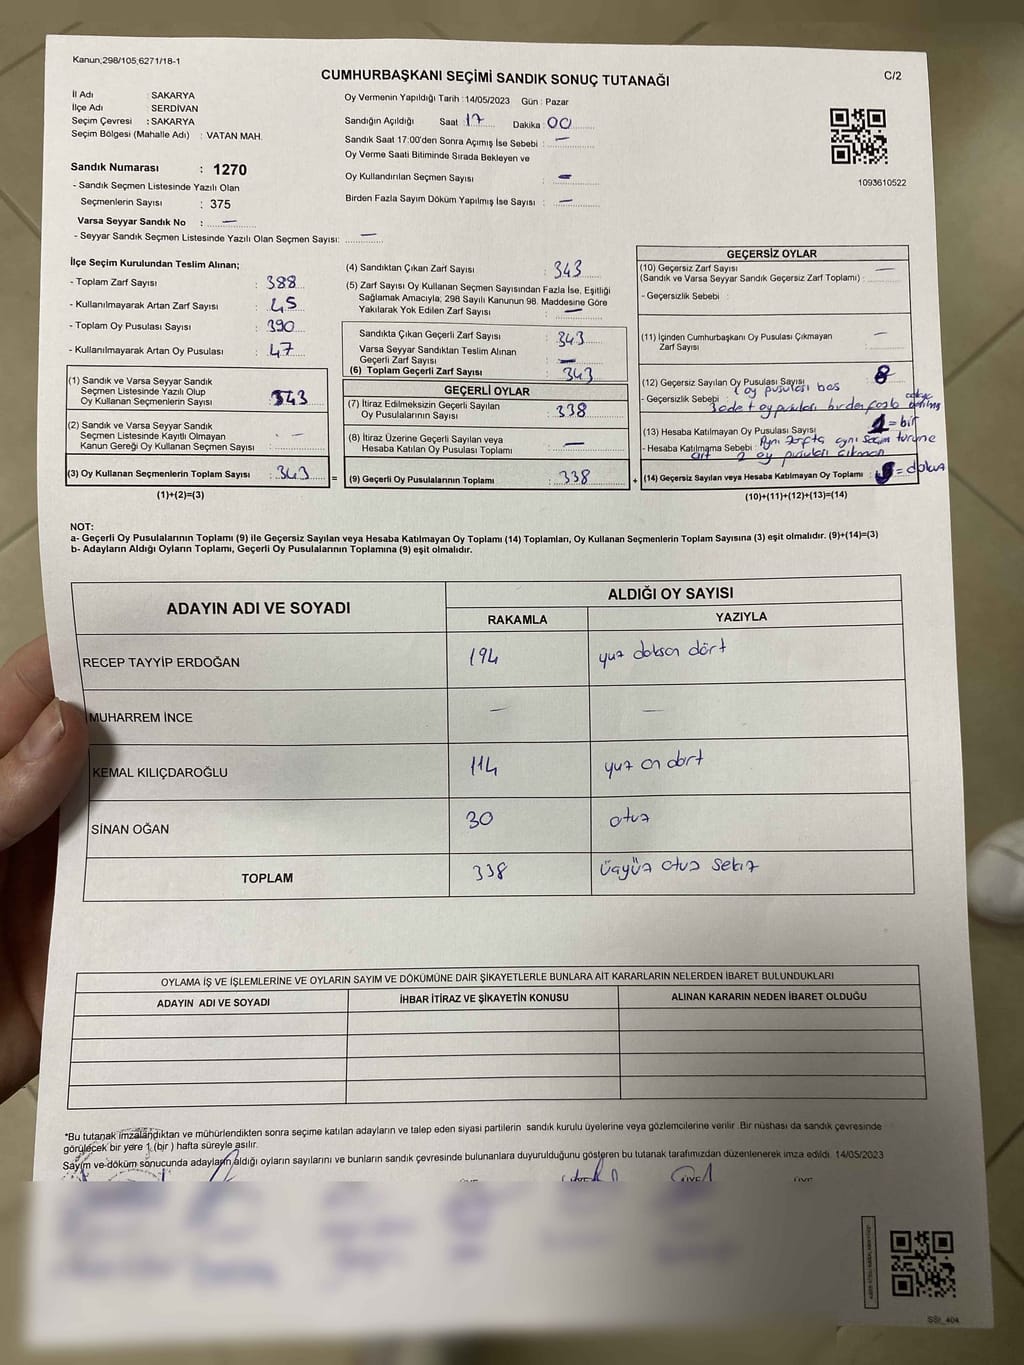 Kanun;298/105,6271/18-1
CUMHURBAŞKANI SEÇİMİ SANDIK SONUÇ TUTANAĞI
C/2
İl Adı : SAKARYA
İlçe Adı : SERDİVAN
Seçim Çevresi : SAKARYA
Seçim Bölgesi (Mahalle Adı) : VATAN MAH.
Sandık Numarası : 1270
- Sandık Seçmen Listesinde Yazılı Olan
Seçmenlerin Sayısı : 375
Varsa Seyyar Sandık No : —
- Seyyar Sandık Seçmen Listesinde Yazılı Olan Seçmen Sayısı: —
Oy Vermenin Yapıldığı Tarih : 14/05/2023 Gün : Pazar
Sandığın Açıldığı Saat : 17 Dakika : 00
Sandık Saat 17:00'den Sonra Açımış İse Sebebi : —
Oy Verme Saati Bitiminde Sırada Bekleyen ve
Oy Kullandırılan Seçmen Sayısı : —
Birden Fazla Sayım Döküm Yapılmış İse Sayısı : —
1093610522
İlçe Seçim Kurulundan Teslim Alınan;
- Toplam Zarf Sayısı : 388
- Kullanılmayarak Artan Zarf Sayısı : 45
- Toplam Oy Pusulası Sayısı : 390
- Kullanılmayarak Artan Oy Pusulası : 47
(1) Sandık ve Varsa Seyyar Sandık
Seçmen Listesinde Yazılı Olup
Oy Kullanan Seçmenlerin Sayısı : 343
(2) Sandık ve Varsa Seyyar Sandık
Seçmen Listesinde Kayıtlı Olmayan
Kanun Gereği Oy Kullanan Seçmen Sayısı : —
(3) Oy Kullanan Seçmenlerin Toplam Sayısı : 343
(1)+(2)=(3)
(4) Sandıktan Çıkan Zarf Sayısı : 343
(5) Zarf Sayısı Oy Kullanan Seçmen Sayısından Fazla İse, Eşitliği
Sağlamak Amacıyla; 298 Sayılı Kanunun 98. Maddesine Göre
Yakılarak Yok Edilen Zarf Sayısı : —
Sandıkta Çıkan Geçerli Zarf Sayısı : 343
Varsa Seyyar Sandıktan Teslim Alınan
Geçerli Zarf Sayısı : —
(6) Toplam Geçerli Zarf Sayısı : 343
GEÇERLİ OYLAR
(7) İtiraz Edilmeksizin Geçerli Sayılan
Oy Pusulalarının Sayısı : 338
(8) İtiraz Üzerine Geçerli Sayılan veya
Hesaba Katılan Oy Pusulası Toplamı : —
= (9) Geçerli Oy Pusulalarının Toplamı : 338
GEÇERSİZ OYLAR
(10) Geçersiz Zarf Sayısı —
(Sandık ve Varsa Seyyar Sandık Geçersiz Zarf Toplamı) :
- Geçersizlik Sebebi :
(11) İçinden Cumhurbaşkanı Oy Pusulası Çıkmayan
Zarf Sayısı : —
(12) Geçersiz Sayılan Oy Pusulası Sayısı : 8
- Geçersizlik Sebebi : 1 oy pusulası boş
3 adet oy pusulası birden fazla
(13) Hesaba Katılmayan Oy Pusulası Sayısı : 1 = bir
- Hesaba Katılmama Sebebi : Aynı zarfta aynı seçim türüne
ait 2 oy pusulası çıkması
+ (14) Geçersiz Sayılan veya Hesaba Katılmayan Oy Toplamı :
(10)+(11)+(12)+(13)=(14)
NOT:
a- Geçerli Oy Pusulalarının Toplamı (9) ile Geçersiz Sayılan veya Hesaba Katılmayan Oy Toplamı (14) Toplamları, Oy Kullanan Seçmenlerin Toplam Sayısına (3) eşit olmalıdır. (9)+(14)=(3)
b- Adayların Aldığı Oyların Toplamı, Geçerli Oy Pusulalarının Toplamına (9) eşit olmalıdır.
ADAYIN ADI VE SOYADI
ALDIĞI OY SAYISI
RAKAMLA
YAZIYLA
RECEP TAYYİP ERDOĞAN 194 yuz doksan dört
MUHARREM İNCE — —
KEMAL KILIÇDAROĞLU 114 yuz on dort
SİNAN OĞAN 30 otuz
TOPLAM 338 üçyüz otuz sekiz
OYLAMA İŞ VE İŞLEMLERİNE VE OYLARIN SAYIM VE DÖKÜMÜNE DAİR ŞİKAYETLERLE BUNLARA AİT KARARLARIN NELERDEN İBARET BULUNDUKLARI
ADAYIN ADI VE SOYADI
İHBAR İTİRAZ VE ŞİKAYETİN KONUSU
ALINAN KARARIN NEDEN İBARET OLDUĞU
*Bu tutanak imzalandıktan ve mühürlendikten sonra seçime katılan adayların ve talep eden siyasi partilerin sandık kurulu üyelerine veya gözlemcilerine verilir. Bir nüshası da sandık çevresinde
görülecek bir yere 1 (bir) hafta süreyle asılır.
Sayım ve döküm sonucunda adayların aldığı oyların sayılarını ve bunların sandık çevresinde bulunanlara duyurulduğunu gösteren bu tutanak tarafımızdan düzenlenerek imza edildi. 14/05/2023
SSt_404